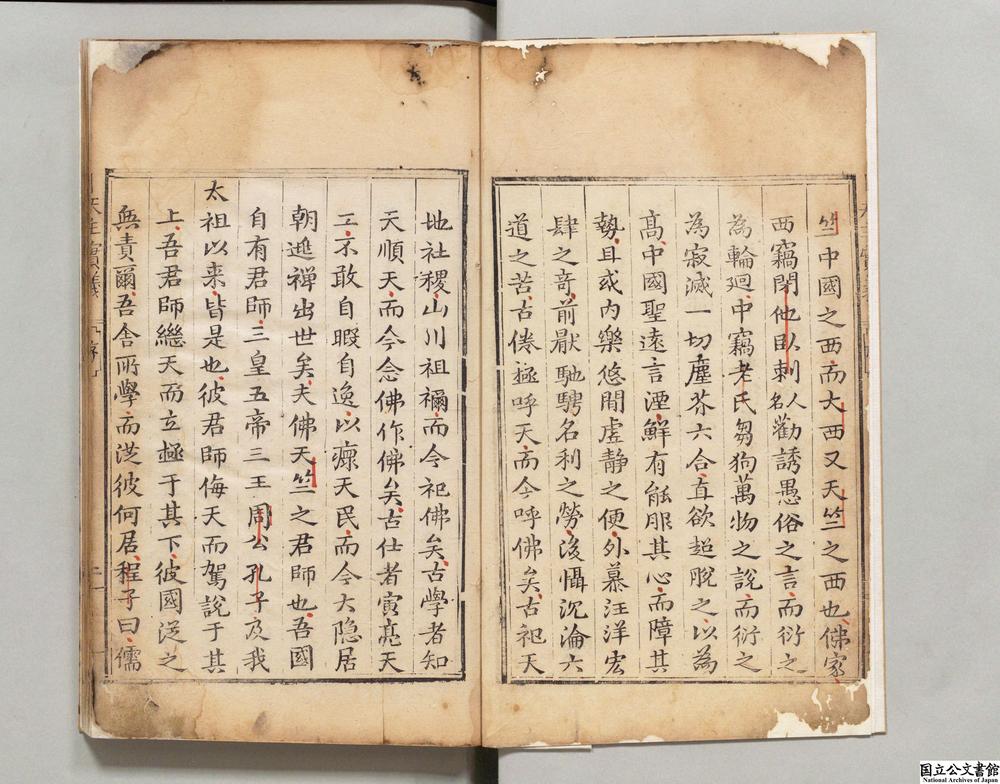 竺中國之西而大西又天竺之西也佛家
西竊閉他臥剌人名勸誘愚俗之言而衍之
為輪廻中竊老氏芻狗萬物之說而衍之
為寂滅一切塵芥六合直欲超脫之以為
高中國聖遠言湮鮮有能服其心而障其
勢且或內樂悠閒虛静之便外慕汪洋宏
肆之竒前厭馳騁名利之勞後懾沉淪六
道之苦古倦極呼天而今呼佛矣古祀天
地社稷山川祖禰而今祀佛矣古學者知
天順天而今念佛作佛矣古仕者寅亮天
工不敢自暇自逸以瘝天民而今大隱居
朝逃禪出世矣夫佛天竺之君師也吾國
自有君師三皇五帝三王周公孔子及我
太祖以来皆是也彼君師侮天而駕說于其
上吾君師繼天而立極于其下彼國從之
無責爾吾舍所學而從彼何居程子曰儒
国立公文書館
National Archives of Japan